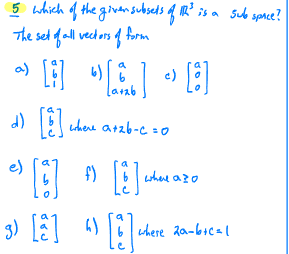 5 which of the given subsets of ℝ³ is a sub space?
The set of all vectors of form
a) [a b 1] b) [a b a+2b] c) [a 0 0]
d) [a b c] where a+2b-c=0
e) [a b 0] f) [a b c] where a≥0
g) [a a c] h) [a b c] where 2a-b+c=1